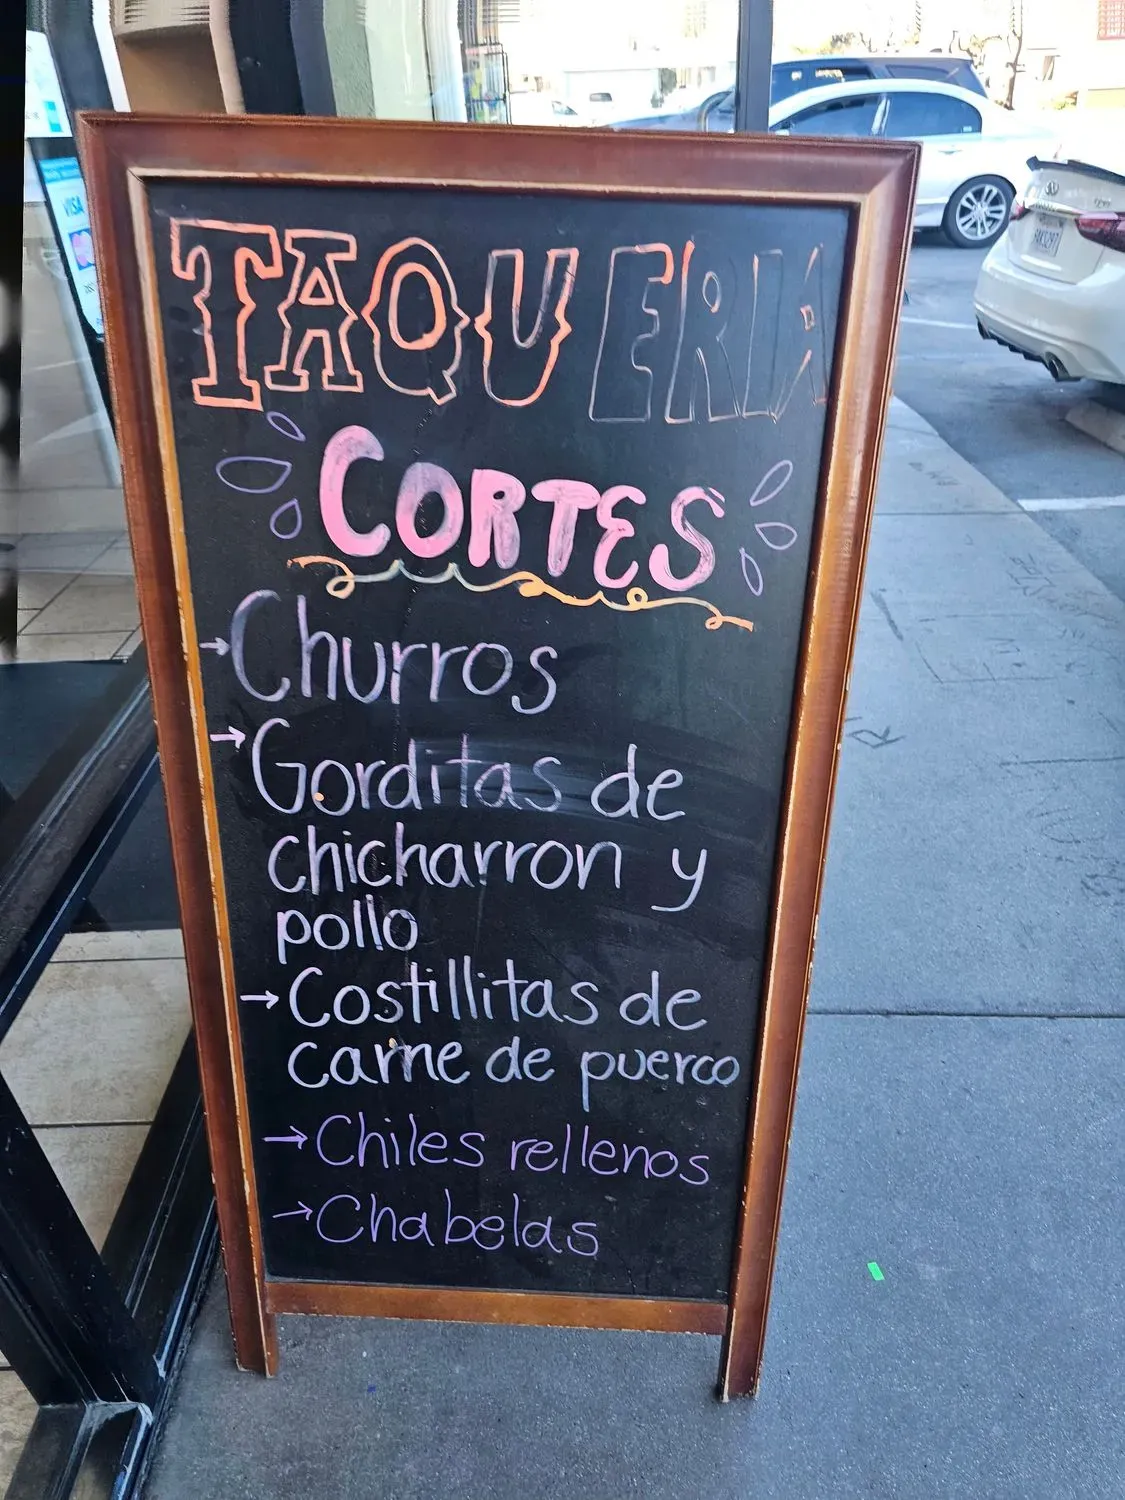 TAQUERIA
CORTES
→Churros
→Gorditas de
chicharron y
pollo
→Costillitas de
carne de puerco
→Chiles rellenos
→Chabelas
VISA